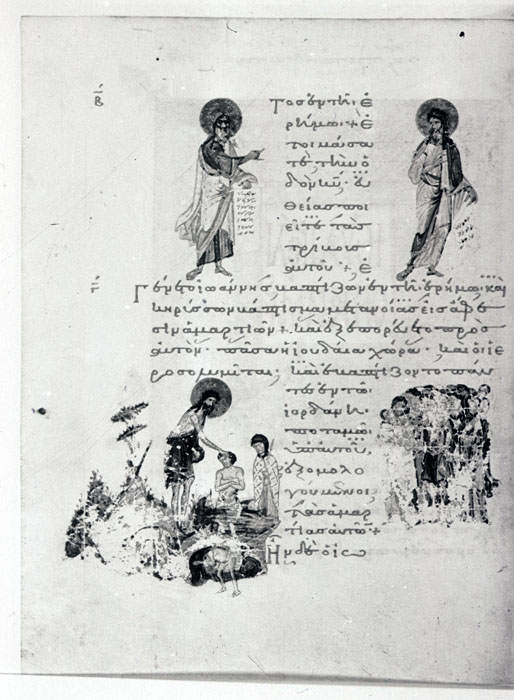 β
τος ἐν τῇ ἐ
ρήμω· + ἑ
τοιμάσα
τε τὴν ὁ
δὸν κυ· εὐ
θείας ποι
εῖτε τὰς
τρίβους
αὐτοῦ + ἐ
γ
γένετο ἰωάννης βαπτίζων ἐν τῇ ἐρήμω· καὶ
κηρύσσων βάπτισμα μετανοίας εἰς ἄφε
σιν ἁμαρτιῶν +. καὶ ἐξεπορεύετο πρὸς
αὐτόν· πᾶσα ἡ ἰουδαία χώρα· καὶ οἱ ἱε
ροσολυμῖται· καὶ ἐβαπτίζοντο πάν
τες ἐν τῶ
ἰορδάνη
ποταμῶ
ὑπ' αὐτοῦ,
ἐξομολο
γούμενοι
τὰς ἁμαρ
τίας αὐτῶν +
Ἦν δὲ ὁ ἰω